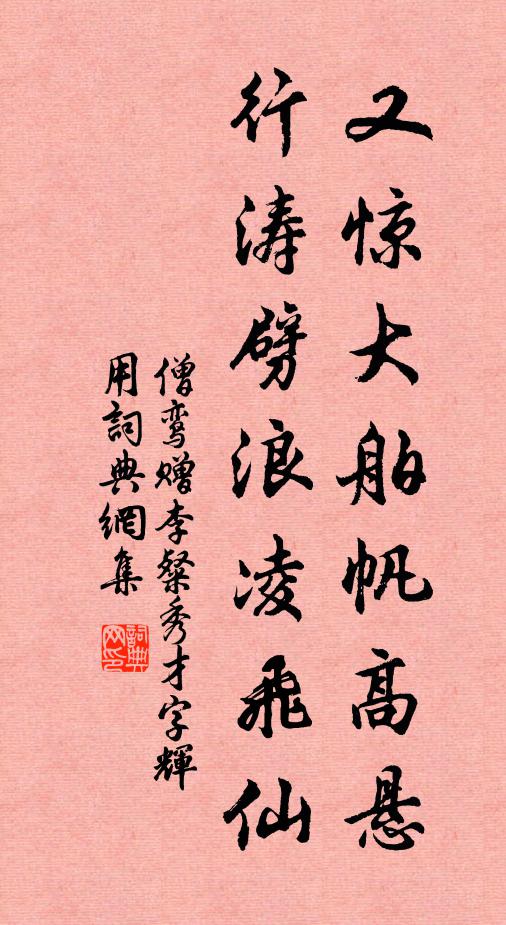 又惊大舶帆高悬
行涛劈浪凌飞仙
僧鸾赠李粲秀才字輝
用詞典網集
詞典网印